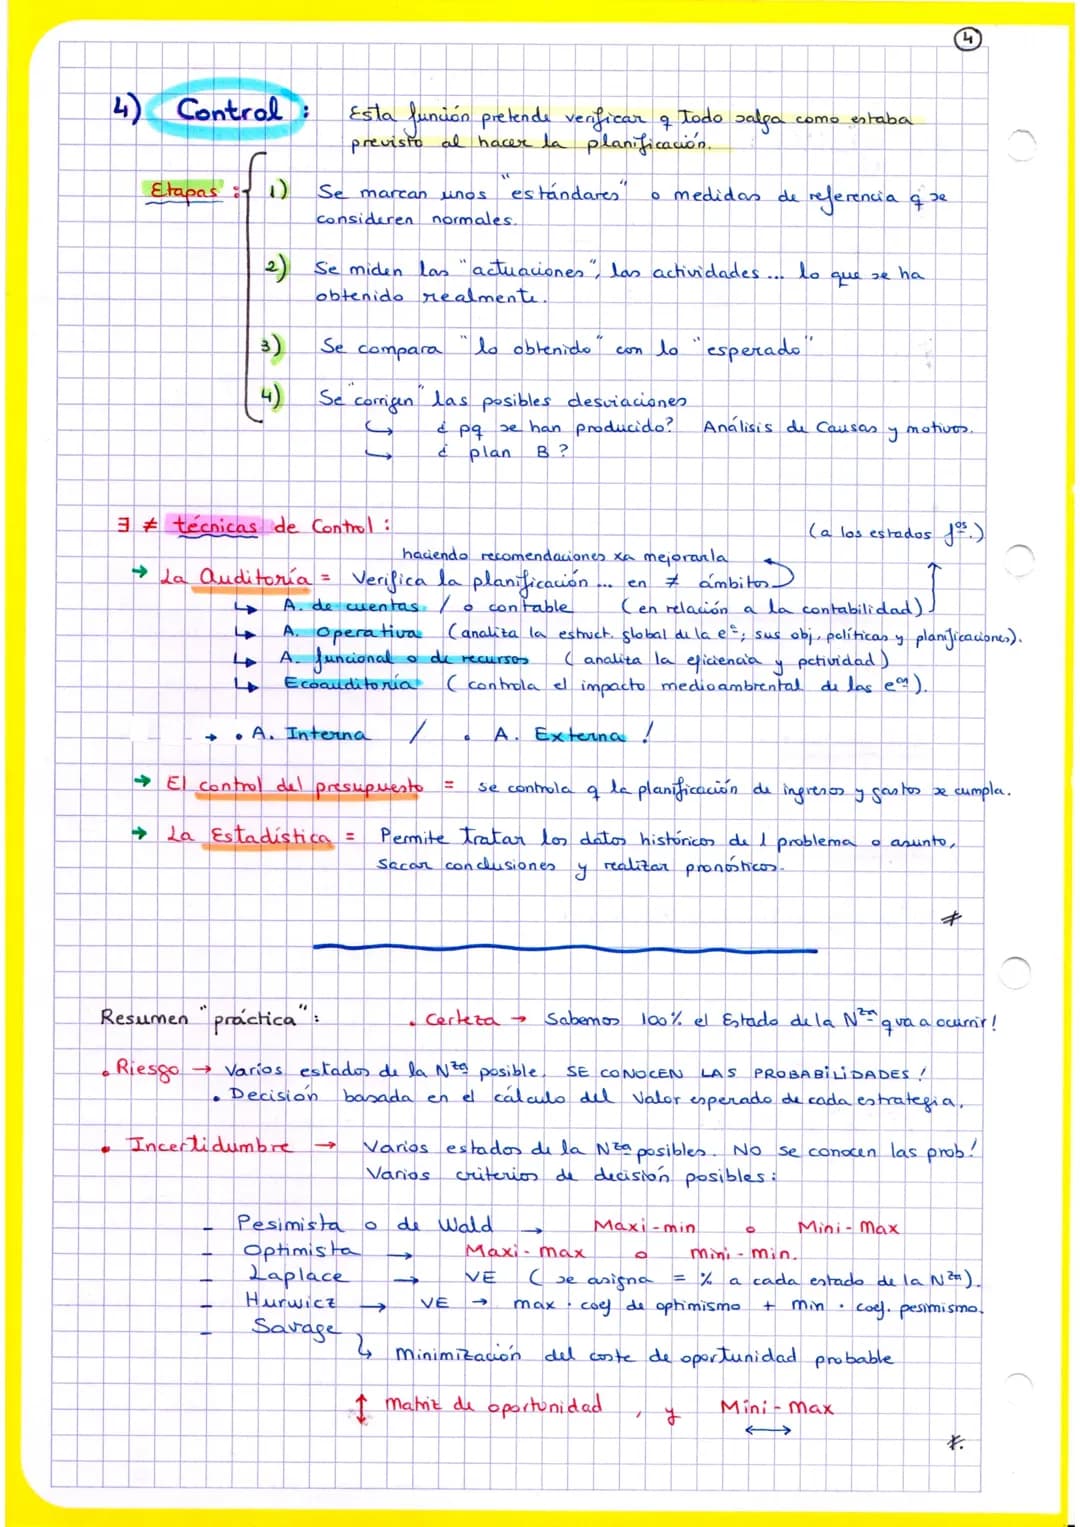 4
4) Control : Esta función pretende verificar q Todo salga como estaba
previsto al hacer la planificación.
Etapas : 1) Se marcan unos "estándares" o medidas de referencia q se
consideren normales.
2) Se miden las "actuaciones", las actividades ... lo que se ha
obtenido realmente.
3) Se compara "lo obtenido" con lo "esperado"
4) Se "corrigen" las posibles desviaciones
↳ ¿ pq se han producido? Análisis de Causas y motivos.
↳ ¿ plan B ?
∃ ≠ técnicas de Control :
(a los estados fos.)
haciendo recomendaciones xa mejorarla
→ La Auditoría = Verifica la planificación ... en ≠ ámbitos
↳ A. de cuentas / o contable (en relación a la contabilidad)
↳ A. Operativa (analiza la estruct. global de la eª; sus obj, políticas y planificaciones).
↳ A. funcional o de recursos ( analiza la eficiencia y pctividad )
↳ Ecoauditoría ( controla el impacto medioambiental de las eas ).
→ • A. Interna / • A. Externa !
→ El control del presupuesto = se controla q la planificación de ingresos y gastos se cumpla.
→ La Estadística = Permite tratar los datos históricos de 1 problema o asunto,
sacar conclusiones y realizar pronósticos.
≠
Resumen "práctica" : • Certeza → Sabemos 100% el Estado de la Nza q va a ocurrir!
• Riesgo → Varios estados de la Nza posible, SE CONOCEN LAS PROBABILIDADES !
• Decisión basada en el cálculo del Valor esperado de cada estrategia.
• Incertidumbre → Varios estados de la Nza posibles. NO se conocen las prob!
Varios criterios de decisión posibles :
- Pesimista o de Wald → Maxi-min o Mini-Max
- Optimista → Maxi-max o mini-min.
- Laplace → VE ( se asigna = % a cada estado de la Nza).
- Hurwicz → VE → max · coef de optimismo + min · coef. pesimismo.
- Savage
↳ minimización del coste de oportunidad probable
↕ matriz de oportunidad , y Mini-max
↔
≠.